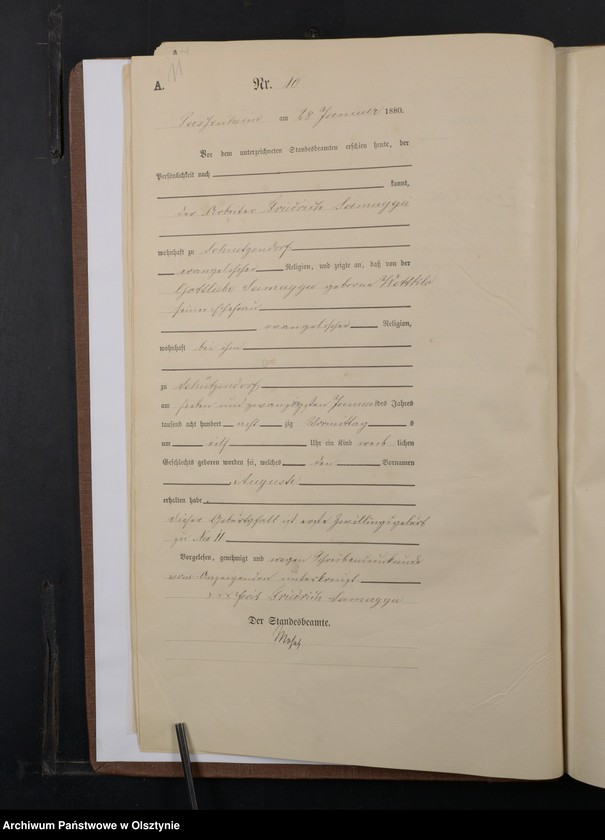 A.
11
A.
Nr. 10
am 28 Januar 1880.
Vor dem unterzeichneten Standesbeamten erschien heute, der
Persönlichkeit nach
kannt,
der Arbeiter Friedrich Samagga
wohnhaft zu Schützendorf
evangelischer Religion, und zeigte an, daß von der
Gottliebe Samagga geborne
seiner Ehefrau
evangelischer Religion,
wohnhaft bei ihm
zu Schützendorf
am sieben und zwanzigsten Januar des Jahres
tausend acht hundert acht zig Vormittag s
um elf Uhr ein Kind weib lichen
Geschlechts geboren worden sei, welches den Vornamen
Auguste
erhalten habe.
dieser Geburtsfall ist erste Zwillingsgeburt
zu No 11
Vorgelesen, genehmigt und wegen Schreibensunkunde
vom Anzeigenden unterkreuzt
+++ Friedrich Samagga
Der Standesbeamte.
Archiwum Państwowe w Olsztynie